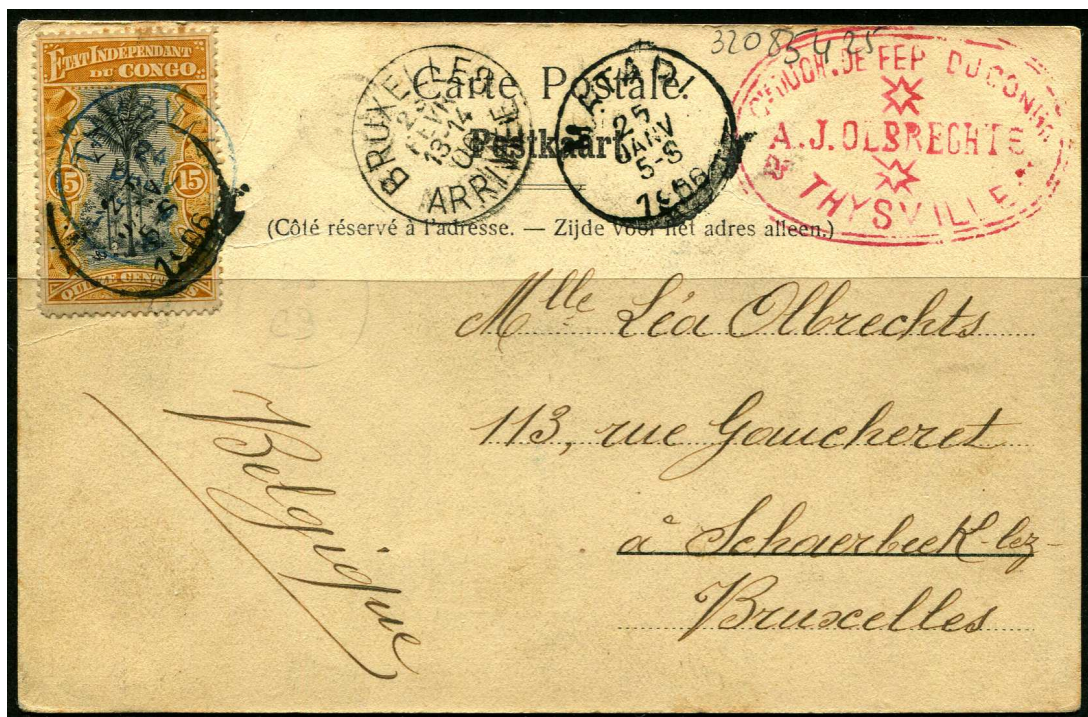 ETAT INDÉPENDANT
DU CONGO
15 15
QUINZE CENTIMES
1906
32085425
Carte Postale.
Postkaart
BRUXELLES
FEVR
13-14
ARRIVEE
MATADI
25
JANV
5-S
1906
CHEM. DE FER DU CONGO
A.J. OLBRECHTS
THYSVILLE
(Côté réservé à l'adresse. — Zijde voor het adres alleen.)
Mlle Léa Olbrechts
113, rue Gaucheret
à Schaerbeek-lez-
Bruxelles
Belgique